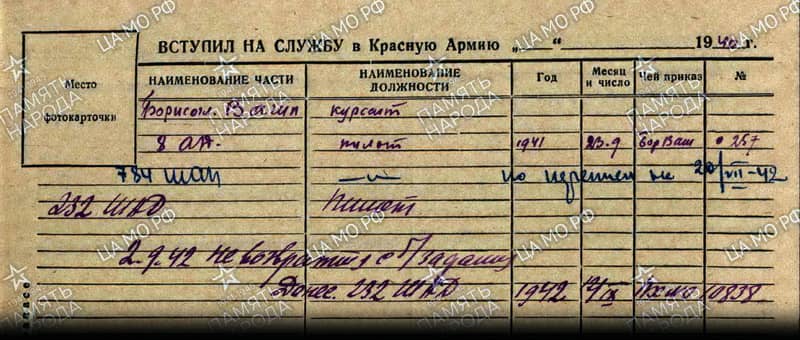 ВСТУПИЛ НА СЛУЖБУ в Красную Армию „ “ 1940 г.
Место фотокарточки
НАИМЕНОВАНИЕ ЧАСТИ
НАИМЕНОВАНИЕ ДОЛЖНОСТИ
Год
Месяц и число
Чей приказ
№
Борисогл. ВАШП курсант
8 АП. пилот 1941 23.9 БорВаш 257
784 шап —"— по 20/VII-42
232 ШАД Пилот
2.9.42 не возвратился с б/задания
Донес. 232 ШАД 1942 14/IX Вх № 10838
ПАМЯТЬ НАРОДА
ЦАМО.РФ